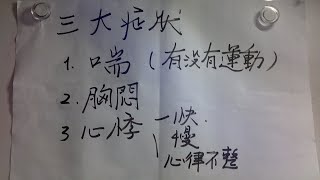 三大症狀
1. 喘 (有没有運動)
2. 胸悶
3 心悸 一快.
慢
心律不整